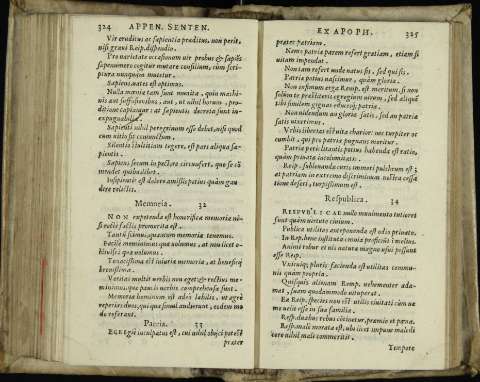 324 APPEN. SENTEN.
Vir eruditus ac sapientia præditus, non perit,
nisi gravi Reip. dispendio.
Pro varietate occasionum vir probus & sapiēs
sæpenumero cogitur mutare consilium, cùm scri-
ptura nunquam mutetur.
Sapiens ætas est optimus.
Nulla mœnia tam sunt munita, quin machi-
nis aut suffossionibus, aut, ut nihil horum, pro-
ditione capiantur: at sapientis decreta sunt in-
expugnabilia.
Sapienti nihil peregrinum esse debet, nisi quod
cum vitio sit conjunctum.
Silentio stultitiam tegere, est pars aliqua sa-
pientis.
Sapiens serum in pectore circumfert, quo se cō-
mendet quibuslibet.
Insipientis est dolere amissis potius quàm gau-
dere relictis.
Memoria. 32
NON expetenda est honorifica memoria ni-
si rectè factis promerita est.
Tanta scimus, quantum memoria tenemus.
Facilè meminimus quæ volumus, at non licet o-
blivisci quæ volumus.
Tenacissima est injuria memoria, at beneficij
brevissima.
Veritas multis verbis non eget: & rectius me-
minimus, quæ paucis verbis comprehensa sunt.
Memoria hominum ut adeò labilis, ut ægrè
reperias duos, qui quæ simul audierunt, eodem mo-
do referant.
Patria. 33
EGREGIE inculpatus est, cui nihil objici potest
præter
EX APOPH. 325
præter patriam.
Nemo patriæ parem refert gratiam, etiam si
vitam impendat.
Non tam refert unde natus sis, sed qui sis.
Patria potius nascimur, quàm gloria.
Non infimum erga Remp. est meritum, si non
solùm te præstiteris egregium virum, sed aliquē
tibi similem gignas educesq; patriæ.
Non videndum an gloria satis, sed an patria
satis vixerimus.
Urbis libertas est vita charior: nec turpiter oc-
cumbit, qui pro patria pugnans moritur.
Patriæ periclitantis potius habenda est ratio,
quàm privatæ incolumitatis.
Reip. sublevanda curis immori pulchrum est;
at patriam in extremo discrimine nostra cessa-
tione deseri, turpissimum est.
Respublica. 34
RESPUBLICAE nullo munimento tutiores
sunt quàm virtute civium.
Publica utilitas anteponenda est odiis privatis.
In Rep. bene instituta omnia proficiunt in melius.
Animi robur et vis naturæ magno usui possunt
esse Reip.
Vtriusq; pluris facienda est utilitas commu-
nis quàm propria.
Quisquis alienam Remp. vehementer ada-
mat, suam quodammodo vituperat.
Ea Reip. species non est utilis civitati cùm ne-
mo velit esse in sua familia.
Resp. duabus rebus continetur, præmio et pœna.
Resp. malè morata est, ubi licet impune maledi-
cere nihil mali commeritis.
Tempore